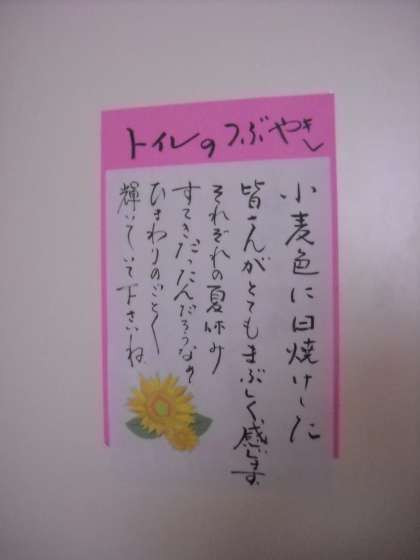 トイレのつぶやきし
小麦色に日焼けした
皆さんがとてもまぶしく感じます
それぞれの夏休み
すてきだったんだろうなあ
ひまわりのごとく
輝いていて下さいね